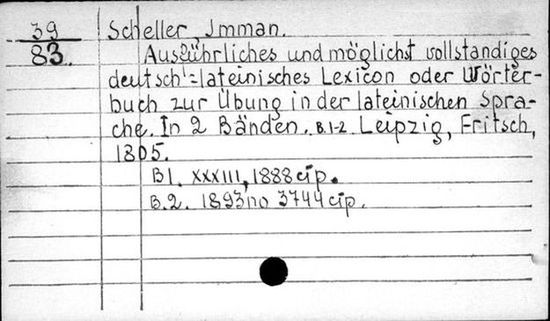 39 Scheller, Jmman.
83. Ausführliches und möglichst vollständiges
deutsch-lateinisches Lexicon oder Wörter-
buch zur Übung in der lateinischen Spra-
che. In 2 Bänden. B.1-2 Leipzig, Fritsch,
1805.
B1. XXXIII, 1888 cīp.
B.2. 1893no 3744 cīp.